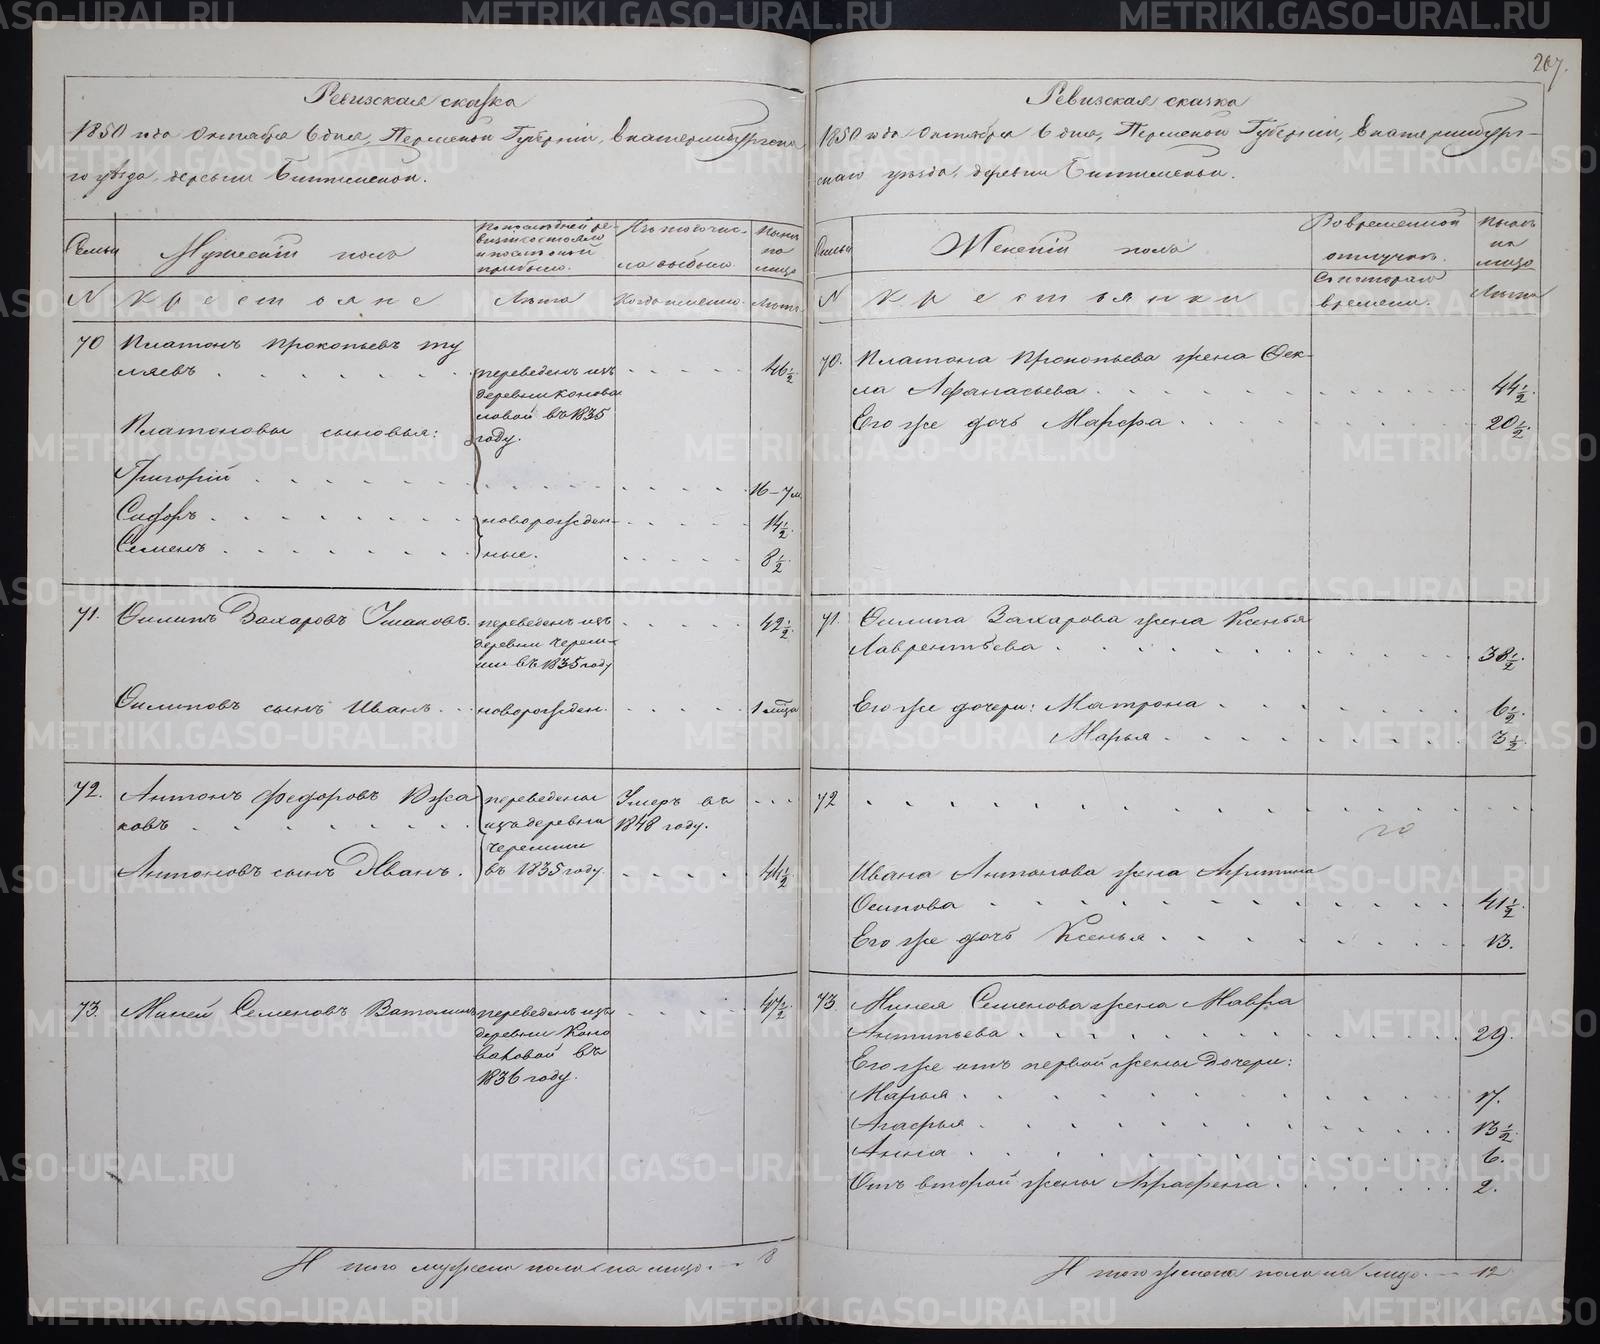 267.
Ревизская сказка
1850 года Октября 6 дня, Пермской Губернiи, Екатеринбургска
го уѣзда, деревни Битимской.
Семьи
Мужескiй полъ
По последней ре-
визiи состояло
и после оной
прибыло.
Изъ того чис-
ла выбыло
Нынѣ
на
лицо
N
Крестьяне
Лѣта
Когда именно.
Лѣта.
70
Платонъ Прокопьевъ
ляевъ
переведенъ изъ
деревни Конова
ловой въ 1835
году.
46 1/2.
Платоновы сыновья:
Григорiй
16-7 м.
Сидоръ
новорожден-
14 1/2.
Семенъ
ные.
8 1/2.
71.
Филипъ Захаровъ Ушаковъ.
переведенъ изъ
деревни
въ 1835 году
42 1/2.
Филиповъ сынъ Иванъ
новорожден.
72.
Антонъ Федоровъ
ковъ
переведены
изъ деревни
въ 1835 году.
Умеръ въ
1848 году.
Антоновъ сынъ Иванъ.
44 1/2
73.
Миней Семеновъ
переведенъ изъ
деревни Коно
валовой въ
1836 году.
47 1/2.
Итого мужеска пола на лицо. 8
Ревизская сказка
1850 года Октября 6 дня, Пермской Губернiи, Екатеринбург-
скаго уѣзда, деревни Битимской.
Семьи
Женскiй полъ
Во временной
отлучкѣ.
Нынѣ
на
лицо
N
Крестьянки
Съ котораго
времени.
Лѣта
70.
Платона Прокопьева жена Фек-
ла Афанасьева
44 1/2.
Его же дочь Марфа
20 1/2.
71
Филипа Захарова жена Ксенья
Лаврентьева
38 1/2.
Его же дочери: Матрона
6 1/2.
Марья
3 1/2.
72
Ивана Антонова жена
Осипова
41 1/2.
Его же дочь Ксенья
13.
73
Минея Семенова жена Мавра
Антипьева
29.
Его же отъ первой жены дочери:
Марья
17.
Агафья
13 1/2.
Анна
6.
Отъ второй жены Аграфена
2.
Итого женска пола на лицо. 12
METRIKI.GASO-URAL.RU